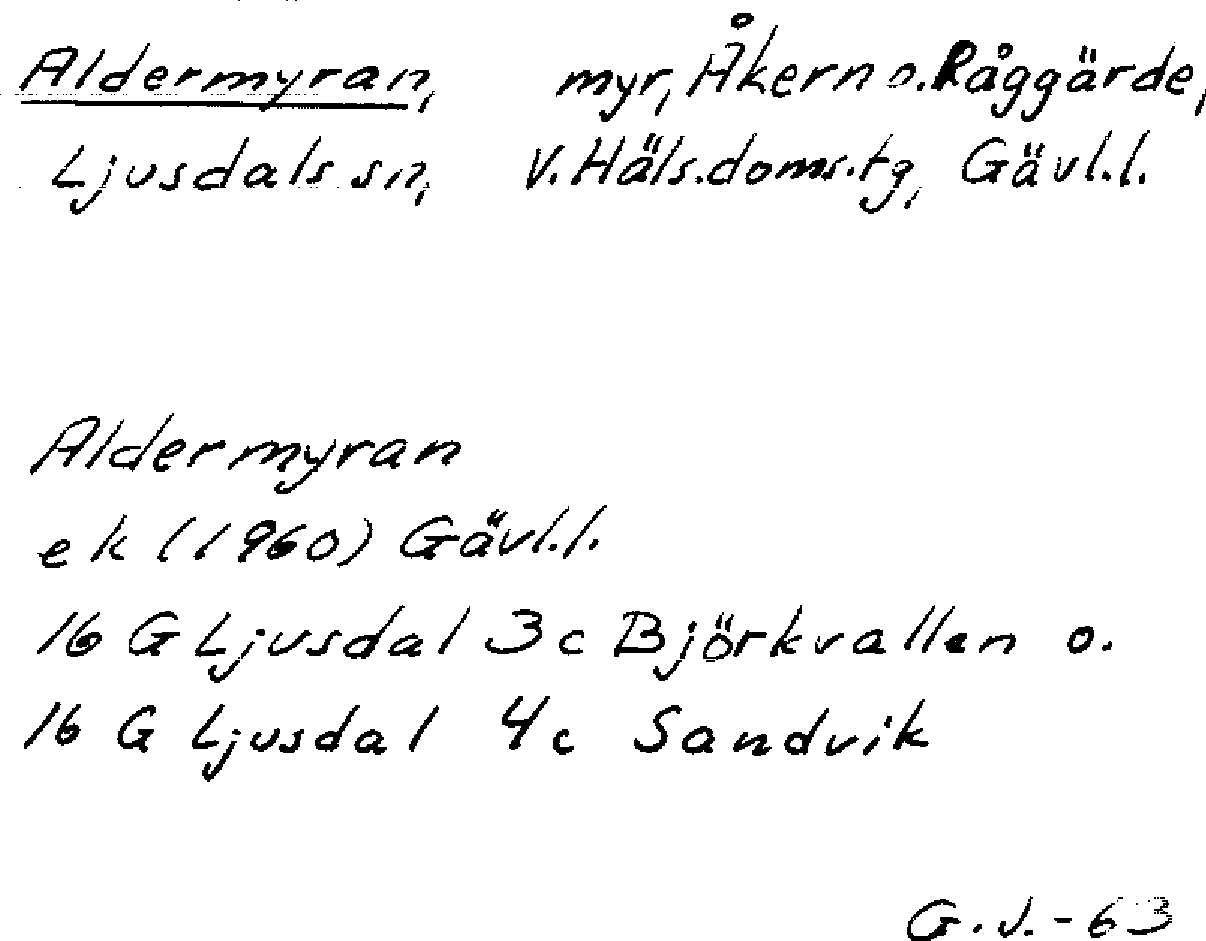 Aldermyran, myr, Åkern o. Råggärde,
Ljusdals sn, V. Häls. doms. tg, Gävl. l.
Aldermyran
ek (1960) Gävl. l.
16 G Ljusdal 3c Björkvallen o.
16 G Ljusdal 4c Sandvik
G. J. - 63